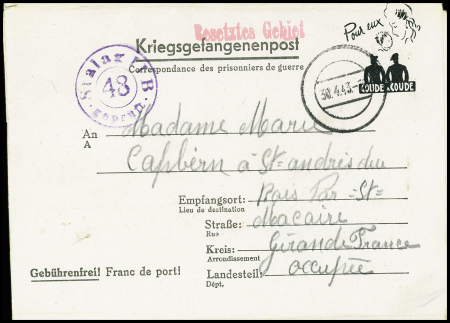 Besetztes Gebiet
Pour eux
Kriegsgefangenenpost
Correspondance des prisonniers de guerre
Stalag B
48
Geprüft
30.4.43
COUDE à COUDE
An Madame Marie
A
Capbern à St-andris du
Empfangsort: Bois Par - St-
Lieu de destination
Straße: Macaire
Rue
Kreis: Gironde France
Arrondissement
Gebührenfrei! Franc de port!
Landesteil: occupée
Dépt.